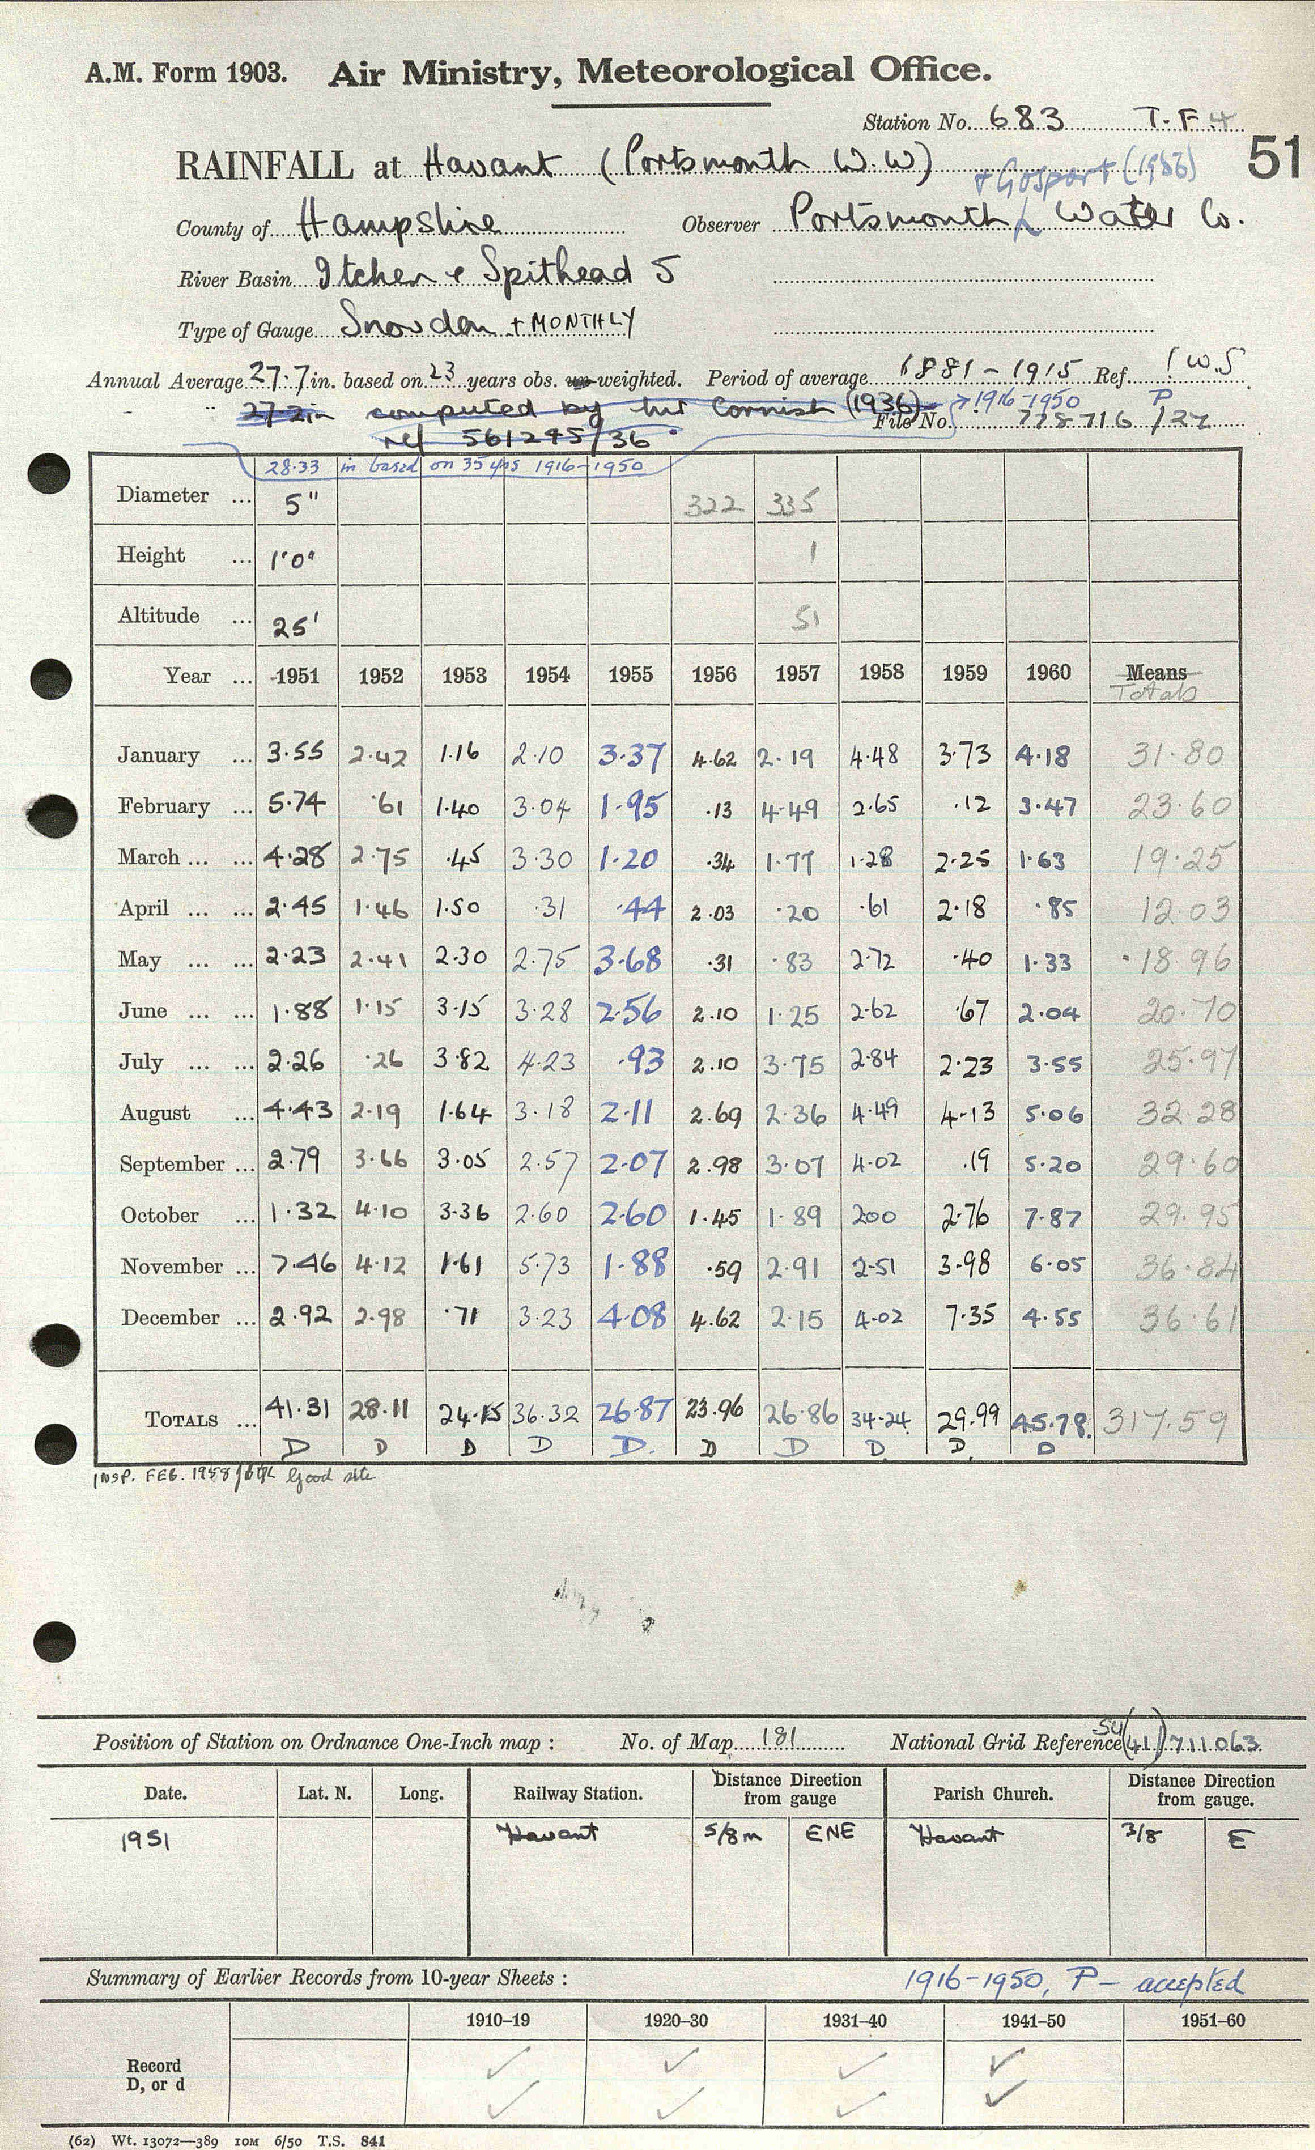 A.M. Form 1903. Air Ministry, Meteorological Office.
Station No. 683 T.F.4
RAINFALL at Havant (Portsmouth W.W) 51
+ Gosport (1956)
County of Hampshire Observer Portsmouth Water Co.
River Basin Itchen & Spithead 5
Type of Gauge Snowdon + MONTHLY
Annual Average 27.7 in. based on 23 years obs. un-weighted. Period of average 1881-1915 Ref. W.S
" 27.2 in computed by Mr Cornish (1936) 1916-1950 P
ref 561295/36 File No. 778716/27
28.33 in based on 35 yrs 1916-1950
Diameter ... 5" 322 335
Height ... 1'0" 1
Altitude ... 25' 51
Year ... 1951 1952 1953 1954 1955 1956 1957 1958 1959 1960 Means
Totals
January ... 3.55 2.42 1.16 2.10 3.37 4.62 2.19 4.48 3.73 4.18 31.80
February ... 5.74 .61 1.40 3.04 1.95 .13 4.49 2.65 .12 3.47 23.60
March ... ... 4.28 2.75 .45 3.30 1.20 .34 1.77 1.28 2.25 1.63 19.25
April ... ... 2.45 1.46 1.50 .31 .44 2.03 .20 .61 2.18 .85 12.03
May ... ... 2.23 2.41 2.30 2.75 3.68 .31 .83 2.72 .40 1.33 18.96
June ... ... 1.88 1.15 3.15 3.28 2.56 2.10 1.25 2.62 .67 2.04 20.70
July ... ... 2.26 .26 3.82 4.23 .93 2.10 3.75 2.84 2.23 3.55 25.97
August ... 4.43 2.19 1.64 3.18 2.11 2.69 2.36 4.49 4.13 5.06 32.28
September ... 2.79 3.66 3.05 2.57 2.07 2.98 3.07 4.02 .19 5.20 29.60
October ... 1.32 4.10 3.36 2.60 2.60 1.45 1.89 2.00 2.76 7.87 29.95
November ... 7.46 4.12 1.61 5.73 1.88 .59 2.91 2.51 3.98 6.05 36.84
December ... 2.92 2.98 .71 3.23 4.08 4.62 2.15 4.02 7.35 4.55 36.61
TOTALS ... 41.31 28.11 24.15 36.32 26.87 23.96 26.86 34.24 29.99 45.78 317.59
D D D D D. D D D D. D
INSP. FEB. 1958 Good site
Position of Station on Ordnance One-Inch map : No. of Map 181 National Grid Reference SU (41) 711063
Date. Lat. N. Long. Railway Station. Distance from gauge Direction Parish Church. Distance from gauge. Direction
1951 Havant 5/8m ENE Havant 3/8 E
Summary of Earlier Records from 10-year Sheets : 1916-1950, P - accepted
1910–19 1920–30 1931–40 1941–50 1951–60
Record ✓ ✓ ✓ ✓
D, or d ✓ ✓ ✓ ✓
(62) Wt. 13072—389 10M 6/50 T.S. 841